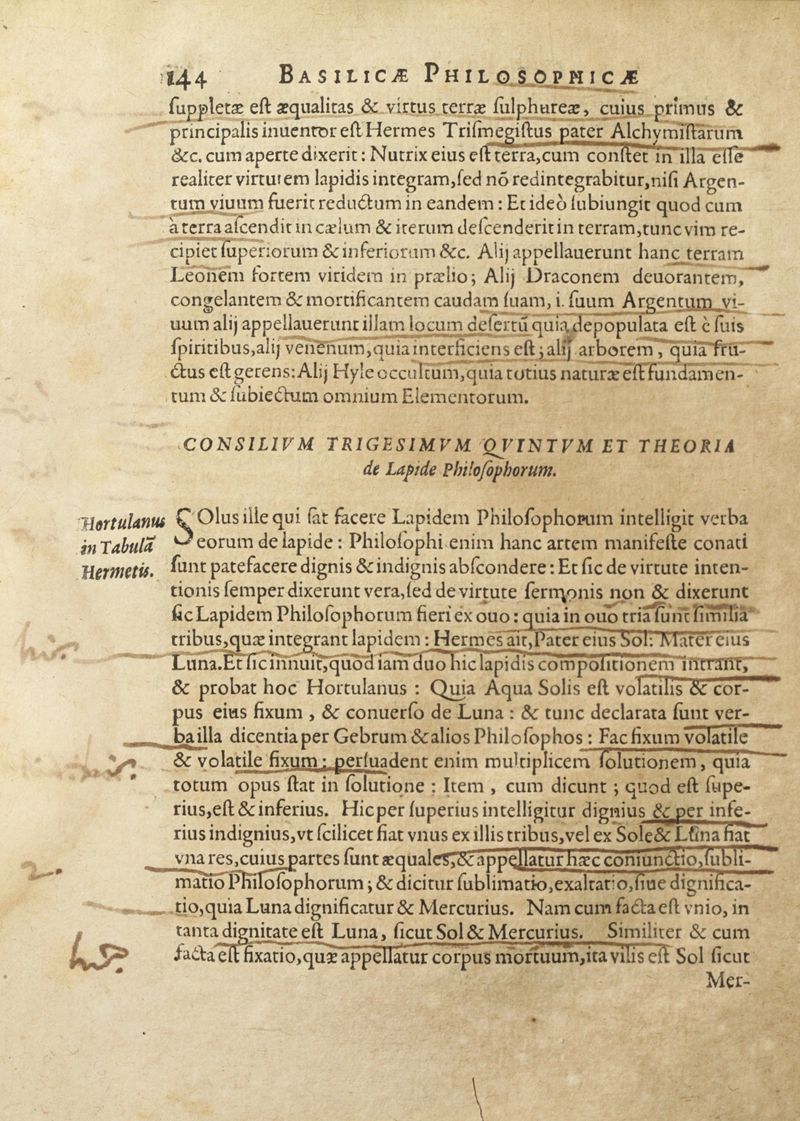 144 BASILICÆ PHILOSOPHICÆ
ſuppletæ eſt æqualitas & virtus terræ ſulphureæ, cuius primus &
principalis inuentor eſt Hermes Triſmegiſtus pater Alchymiſtarum
&c. cum aperte dixerit: Nutrix eius eſt terra, cum conſtet in illa eſſe
realiter virtutem lapidis integram, ſed nō redintegrabitur, niſi Argen-
tum viuum fuerit reductum in eandem: Et ideò ſubiungit quod cum
à terra aſcendit in cælum & iterum deſcenderit in terram, tunc vim re-
cipiet ſuperiorum & inferiorum &c. Alij appellauerunt hanc terram
Leonem fortem viridem in prælio; Alij Draconem deuorantem,
congelantem & mortificantem caudam ſuam, i. ſuum Argentum vi-
uum alij appellauerunt illam locum deſertū quia depopulata eſt è ſuis
ſpiritibus, alij venenum, quia interficiens eſt; alij arborem, quia fru-
ctus eſt gerens: Alij Hyle occultum, quia totius naturæ eſt fundamen-
tum & ſubiectum omnium Elementorum.
CONSILIVM TRIGESIMVM QVINTVM ET THEORIA
de Lapide Philoſophorum.
Hortulanus
in Tabulā
Hermetis.
SOlus ille qui ſat facere Lapidem Philoſophorum intelligit verba
eorum de lapide: Philoſophi enim hanc artem manifeſte conati
ſunt patefacere dignis & indignis abſcondere: Et ſic de virtute inten-
tionis ſemper dixerunt vera, ſed de virtute ſermonis non & dixerunt
ſic Lapidem Philoſophorum fieri ex ouo: quia in ouo tria ſunt ſimilia
tribus, quæ integrant lapidem: Hermes ait, Pater eius Sol: Mater eius
Luna. Et ſic innuit, quod iam duo hic lapidis compoſitionem intrant,
& probat hoc Hortulanus: Quia Aqua Solis eſt volatilis & cor-
pus eius fixum, & conuerſo de Luna: & tunc declarata ſunt ver-
ba illa dicentia per Gebrum & alios Philoſophos: Fac fixum volatile
& volatile fixum: perſuadent enim multiplicem ſolutionem, quia
totum opus ſtat in ſolutione: Item, cum dicunt; quod eſt ſupe-
rius, eſt & inferius. Hic per ſuperius intelligitur dignius & per infe-
rius indignius, vt ſcilicet fiat vnus ex illis tribus, vel ex Sole & Luna fiat
vna res, cuius partes ſunt æquales, & appellatur hæc coniunctio, ſubli-
matio Philoſophorum; & dicitur ſublimatio, exaltatio, ſiue dignifica-
tio, quia Luna dignificatur & Mercurius. Nam cum facta eſt vnio, in
tanta dignitate eſt Luna, ſicut Sol & Mercurius. Similiter & cum
facta eſt fixatio, quæ appellatur corpus mortuum, ita vilis eſt Sol ſicut
Mer-